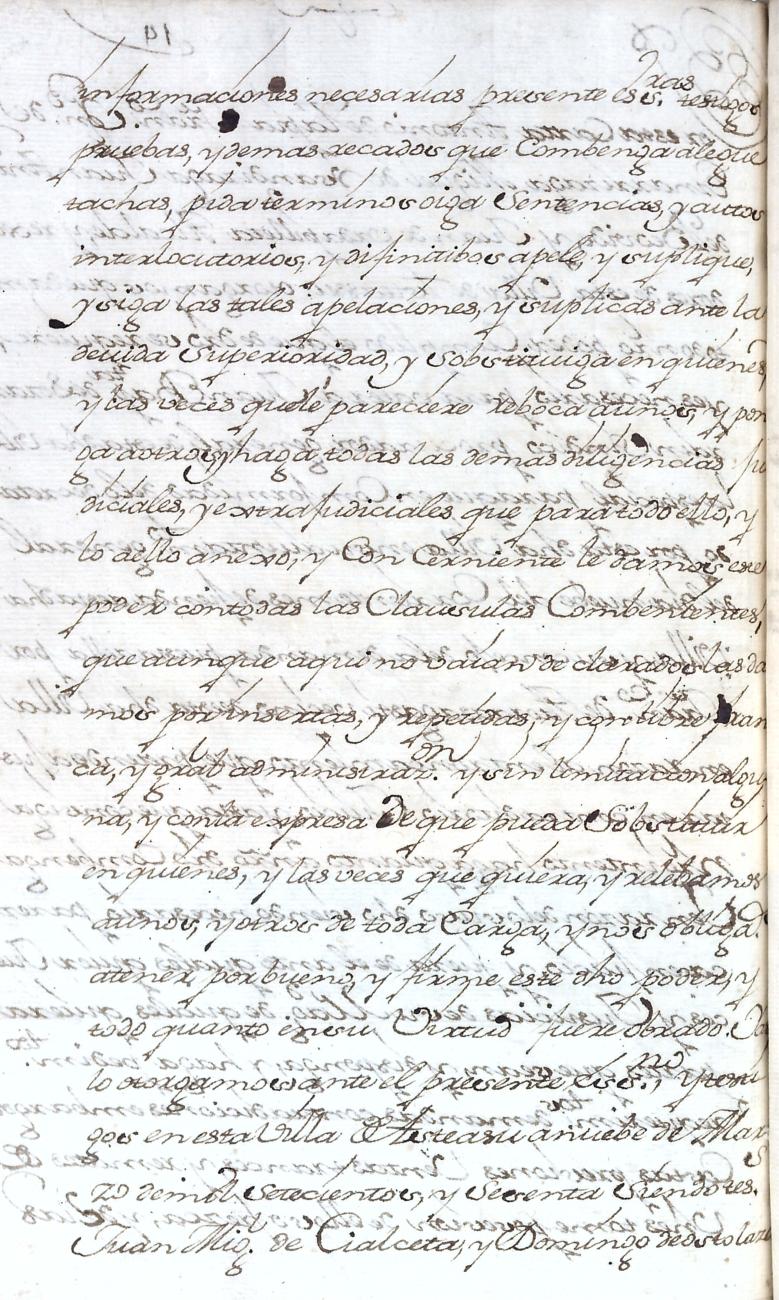 informaciones necesarias presente ess.ras testigos
pruebas, y demas recados que Combenga alegue
tachas, pida terminos oiga Sentencias, y autos
interlocutorios, y difinitibos apele, y suplique,
y siga las tales apelaciones, y suplicas ante la
devida Superioridad, y sobstituiga en quienes,
y las veces que le pareciere reboca a unos, y pon
ga a otros, y haga todas las demas diligencias ju
diciales, y extrajudiciales que para todo ello, y
lo a ello anexo, y Con Cerniente le damos este
poder con todas las Clausulas Combenientes,
que aunque aqui no vaian de clarados las da
mos por insertas, y repetidas, y con libre fran
ca, y gral administraz.on y sin limitacion algu
na, y conta expresa de que pueda Sobstituir
en quienes, y las veces que quiera, y relebamos
a unos, y otros de toda Carga, y nos obliga.
a tener por bueno, y firme este dho poder, y
todo quanto en su Virtud fuere obrado.
lo otorgamos ante el presente ess.no, y testi
gos en esta Villa de Asteasu a nuebe de Mar
zo de mil Setecientos, y Sesenta siendo tes.
Juan Mig.l de Cialceta, y Domingo de ostolaza